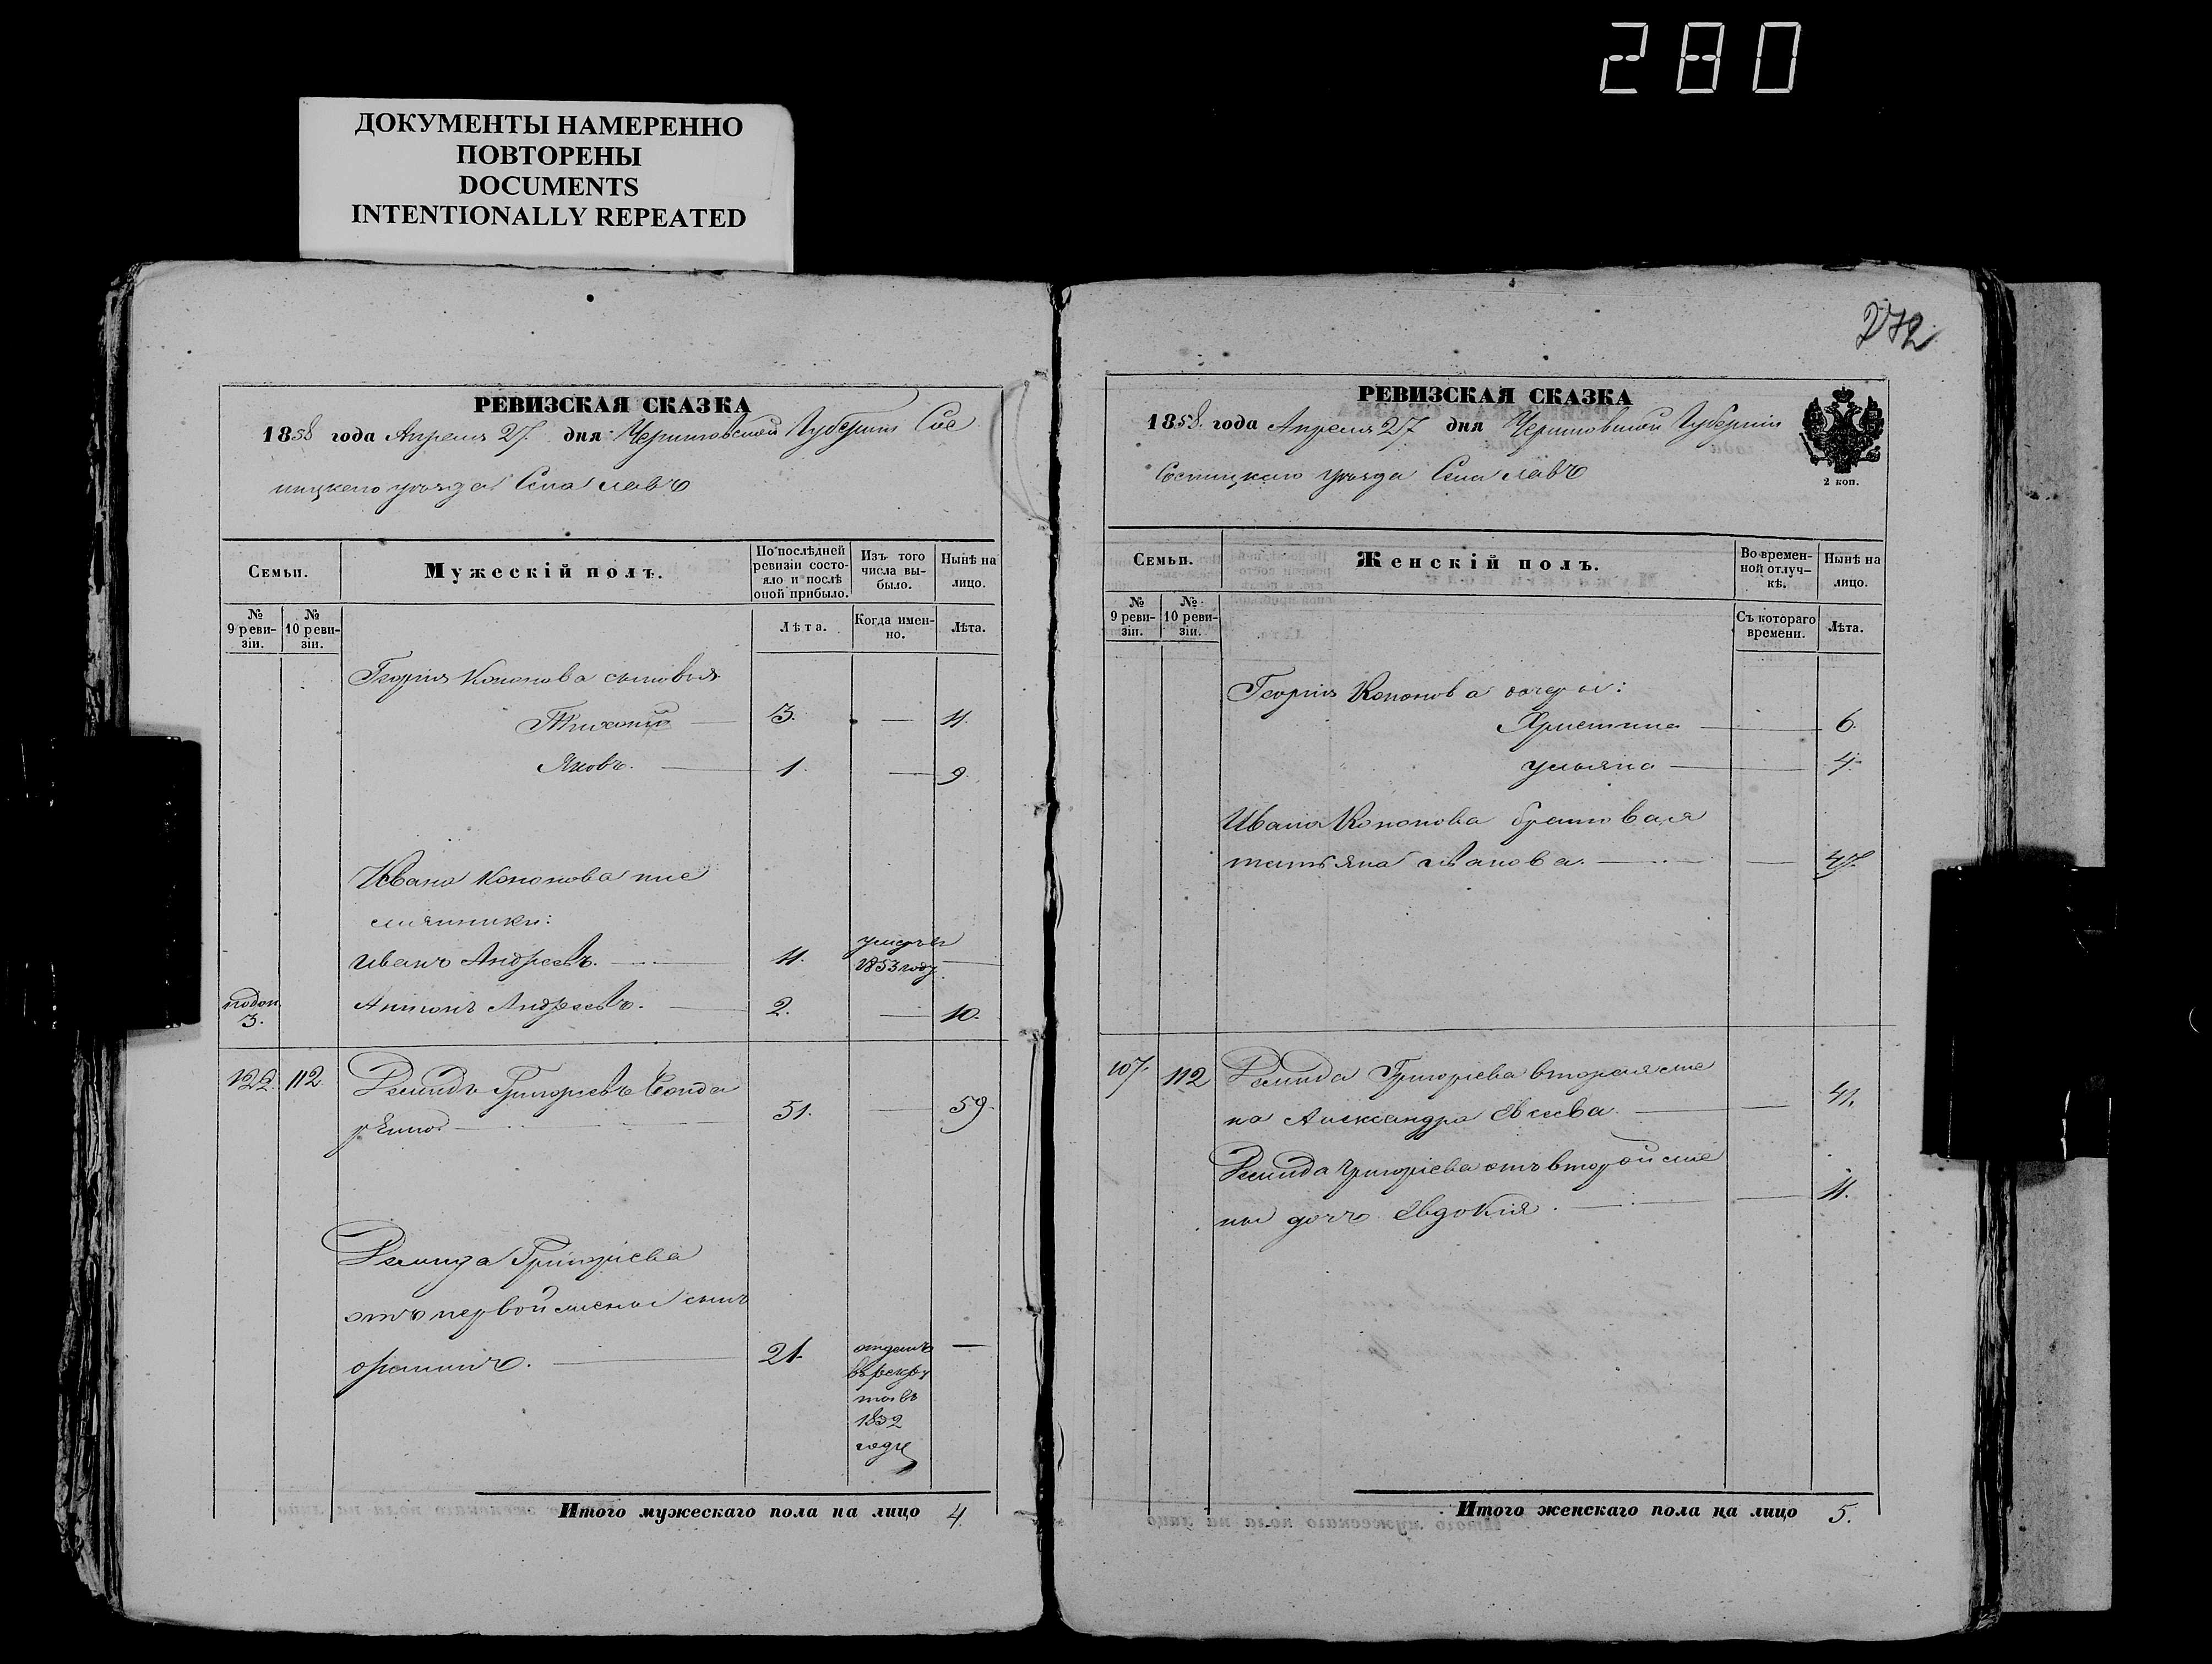 280
ДОКУМЕНТЫ НАМЕРЕННО
ПОВТОРЕНЫ
DOCUMENTS
INTENTIONALLY REPEATED
РЕВИЗСКАЯ СКАЗКА
1858 года Апреля 27. дня Черниговской Губернии Сос
ницкаго уѣзда Села
Семьи.
Мужескій полъ.
По послѣдней
ревизіи состо-
яло и послѣ
оной прибыло.
Изъ того
числа вы-
было.
Нынѣ на
лицо.
№
9 реви-
зіи.
№
10 реви-
зіи.
Лѣта.
Когда имен-
но.
Лѣта.
Георгія Кононова сыновья
3. — 11.
Яковъ. — 1. — 9.
Ивана Кононова пле
мянники:
Иванъ Андреевъ. — 11. умеръ въ 1853 году. —
3. Антонъ Андреевъ. — 2. — 10.
122. 112. Демидъ Григорьевъ
51. — 59.
Демида Григоріева
отъ первой жены сынъ
21. отданъ —
въ рекру
ты въ
1852
году
Итого мужескаго пола на лицо 4.
272
РЕВИЗСКАЯ СКАЗКА
1858. года Апреля 27 дня Черниговской Губерніи
Сосницкаго уѣзда Села
2 коп.
Семьи.
Женскій полъ.
Во времен-
ной отлуч-
кѣ.
Нынѣ на
лицо.
№
9 реви-
зіи.
№
10 реви-
зіи.
Съ котораго
времени.
Лѣта.
Георгія Кононова дочери:
Христина — 6.
Ульяна — 4.
Ивана Кононова братовая
татьяна — 47.
107. 112 Демида Григорьева вторая же
на Александра Евсеева. — 41.
Демида Григоріева отъ второй же
ны дочь Евдокія. — 11.
Итого женскаго пола на лицо 5.